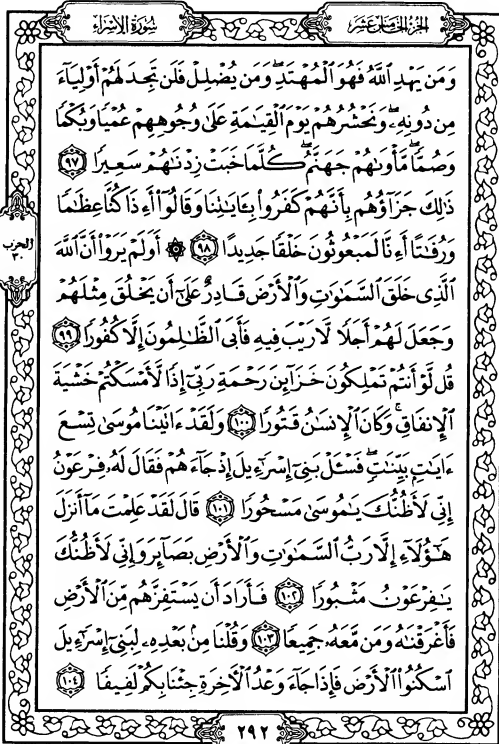 الجزء الخامس عشر
سورة الإسراء
وَمَن يَهْدِ ٱللَّهُ فَهُوَ ٱلْمُهْتَدِ ۖ وَمَن يُضْلِلْ فَلَن تَجِدَ لَهُمْ أَوْلِيَآءَ
مِن دُونِهِۦ ۖ وَنَحْشُرُهُمْ يَوْمَ ٱلْقِيَـٰمَةِ عَلَىٰ وُجُوهِهِمْ عُمْيًا وَبُكْمًا
وَصُمًّا ۖ مَّأْوَىٰهُمْ جَهَنَّمُ ۖ كُلَّمَا خَبَتْ زِدْنَـٰهُمْ سَعِيرًا ٩٧
ذَٰلِكَ جَزَآؤُهُم بِأَنَّهُمْ كَفَرُوا۟ بِـَٔايَـٰتِنَا وَقَالُوٓا۟ أَءِذَا كُنَّا عِظَـٰمًا
وَرُفَـٰتًا أَءِنَّا لَمَبْعُوثُونَ خَلْقًا جَدِيدًا ٩٨ ۞ أَوَلَمْ يَرَوْا۟ أَنَّ ٱللَّهَ
الحزب ٣٠
ٱلَّذِى خَلَقَ ٱلسَّمَـٰوَٰتِ وَٱلْأَرْضَ قَادِرٌ عَلَىٰٓ أَن يَخْلُقَ مِثْلَهُمْ
وَجَعَلَ لَهُمْ أَجَلًا لَّا رَيْبَ فِيهِ فَأَبَى ٱلظَّـٰلِمُونَ إِلَّا كُفُورًا ٩٩
قُل لَّوْ أَنتُمْ تَمْلِكُونَ خَزَآئِنَ رَحْمَةِ رَبِّىٓ إِذًا لَّأَمْسَكْتُمْ خَشْيَةَ
ٱلْإِنفَاقِ ۚ وَكَانَ ٱلْإِنسَـٰنُ قَتُورًا ١٠٠ وَلَقَدْ ءَاتَيْنَا مُوسَىٰ تِسْعَ
ءَايَـٰتٍۭ بَيِّنَـٰتٍ ۖ فَسْـَٔلْ بَنِىٓ إِسْرَٰٓءِيلَ إِذْ جَآءَهُمْ فَقَالَ لَهُۥ فِرْعَوْنُ
إِنِّى لَأَظُنُّكَ يَـٰمُوسَىٰ مَسْحُورًا ١٠١ قَالَ لَقَدْ عَلِمْتَ مَآ أَنزَلَ
هَـٰٓؤُلَآءِ إِلَّا رَبُّ ٱلسَّمَـٰوَٰتِ وَٱلْأَرْضِ بَصَآئِرَ وَإِنِّى لَأَظُنُّكَ
يَـٰفِرْعَوْنُ مَثْبُورًا ١٠٢ فَأَرَادَ أَن يَسْتَفِزَّهُم مِّنَ ٱلْأَرْضِ
فَأَغْرَقْنَـٰهُ وَمَن مَّعَهُۥ جَمِيعًا ١٠٣ وَقُلْنَا مِنۢ بَعْدِهِۦ لِبَنِىٓ إِسْرَٰٓءِيلَ
ٱسْكُنُوا۟ ٱلْأَرْضَ فَإِذَا جَآءَ وَعْدُ ٱلْـَٔاخِرَةِ جِئْنَا بِكُمْ لَفِيفًا ١٠٤
٢٩٢